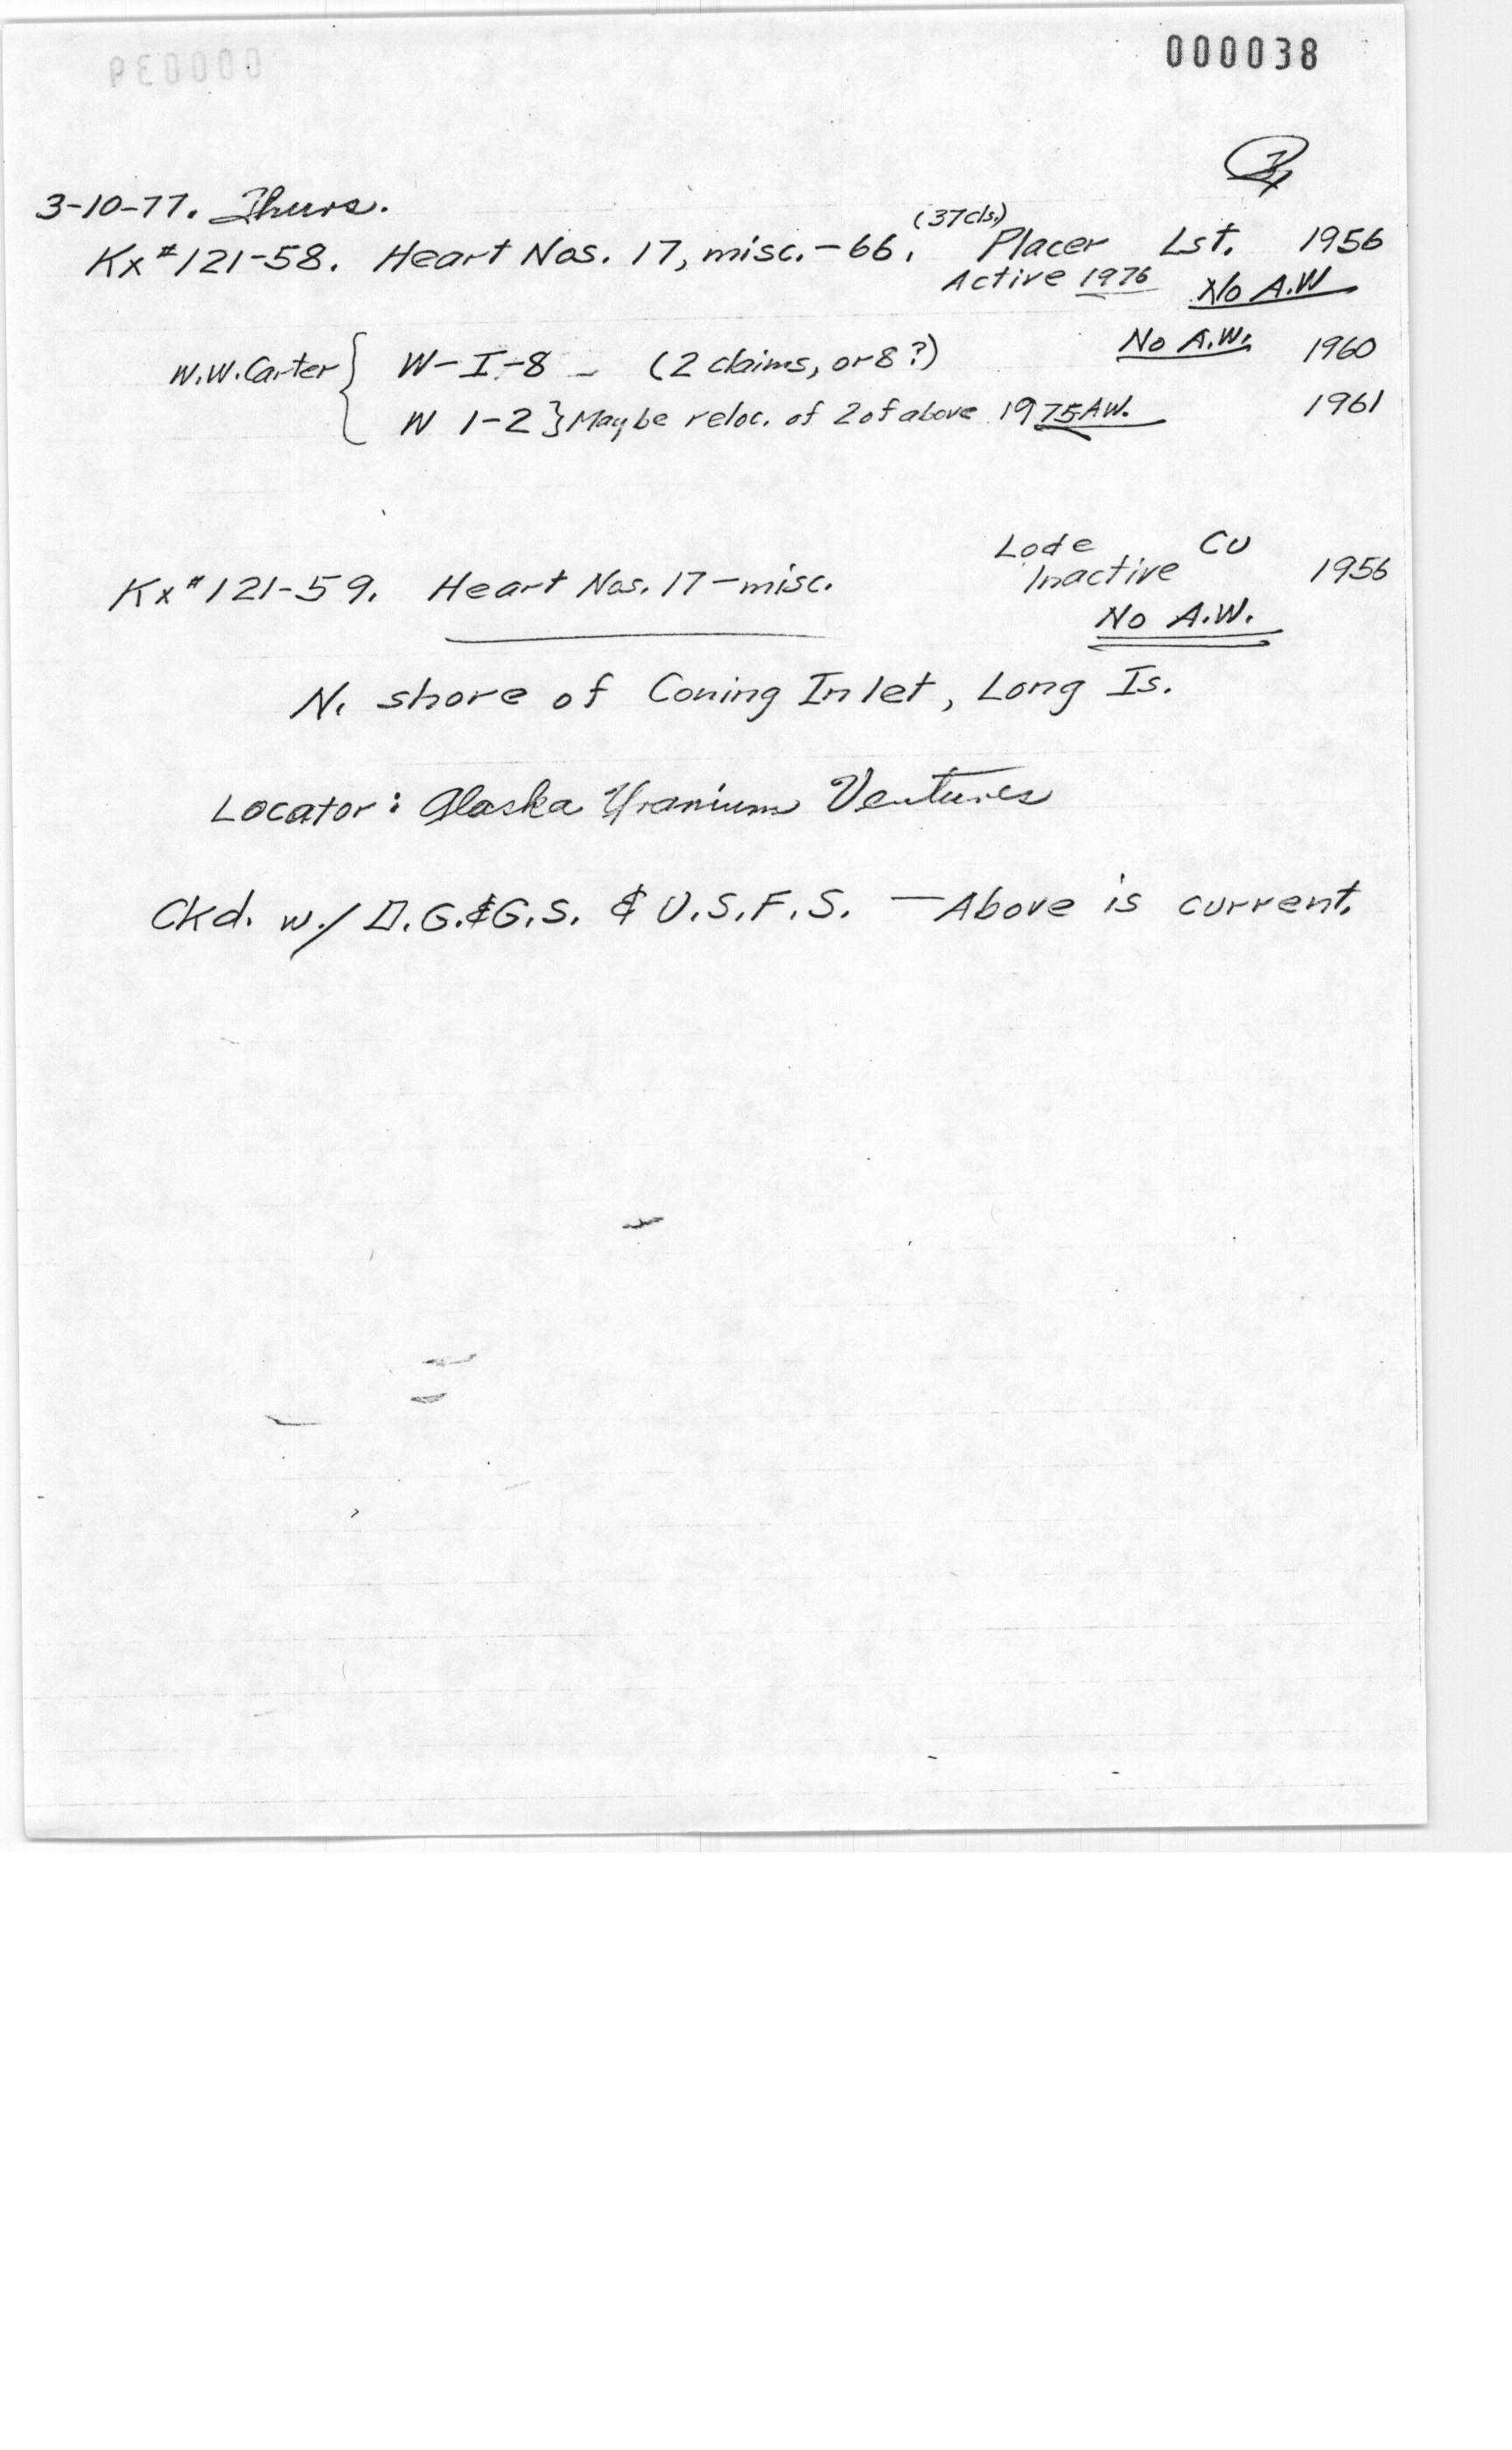 000038
000039
3-10-77. Thurs.
(37 cls.)
Kx #121-58. Heart Nos. 17, misc. - 66. Placer Lst. 1956
Active 1976 No A.W
No A.W. 1960
W.W. Carter { W-I-8 - (2 claims, or 8?)
W 1-2 } Maybe reloc. of 2 of above 1975 AW. 1961
Lode Cu
Kx #121-59. Heart Nos. 17-misc. Inactive 1956
No A.W.
N. shore of Coning Inlet, Long Is.
Locator: Alaska Uranium Ventures
Ckd. w./ D.G.&G.S. & U.S.F.S. — Above is current.